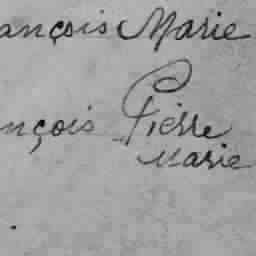 ançois Marie
nçois Pierre
Marie